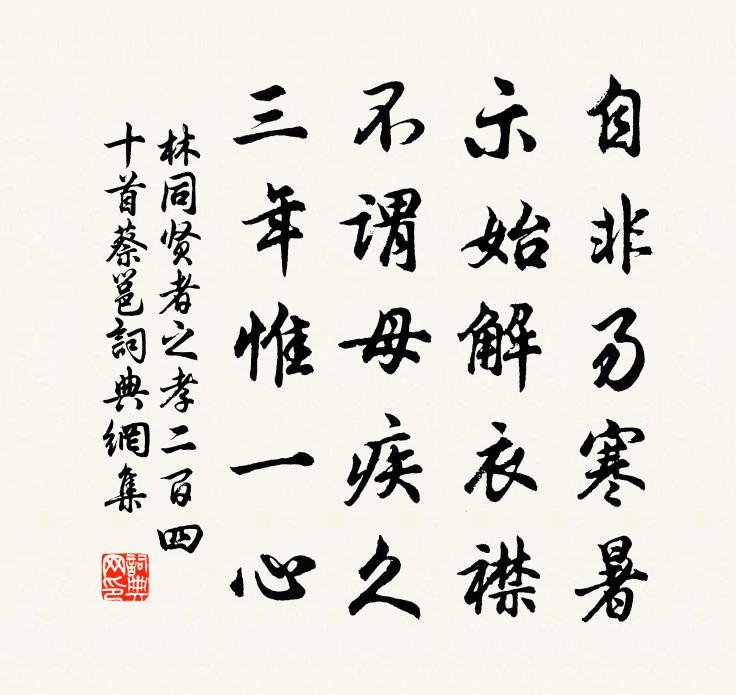 自非易寒暑
示始解衣襟
不謂母疾久
三年惟一心
林同贤者之孝二百四
十首蔡邕詞典網集
詞典网印